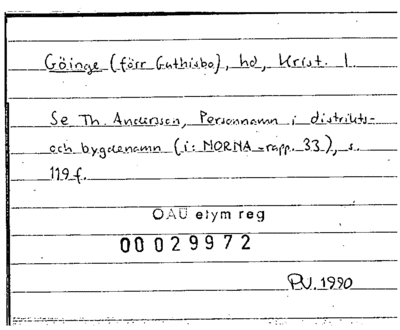 Göinge (förr Guthisbo), hd, Krist. l.
Se Th. Andersson, Personnamn i distrikts-
och bygdenamn (i: NORNA-rapp. 33), s.
119 f.
OAU etym reg
00 029972
P.V. 1990